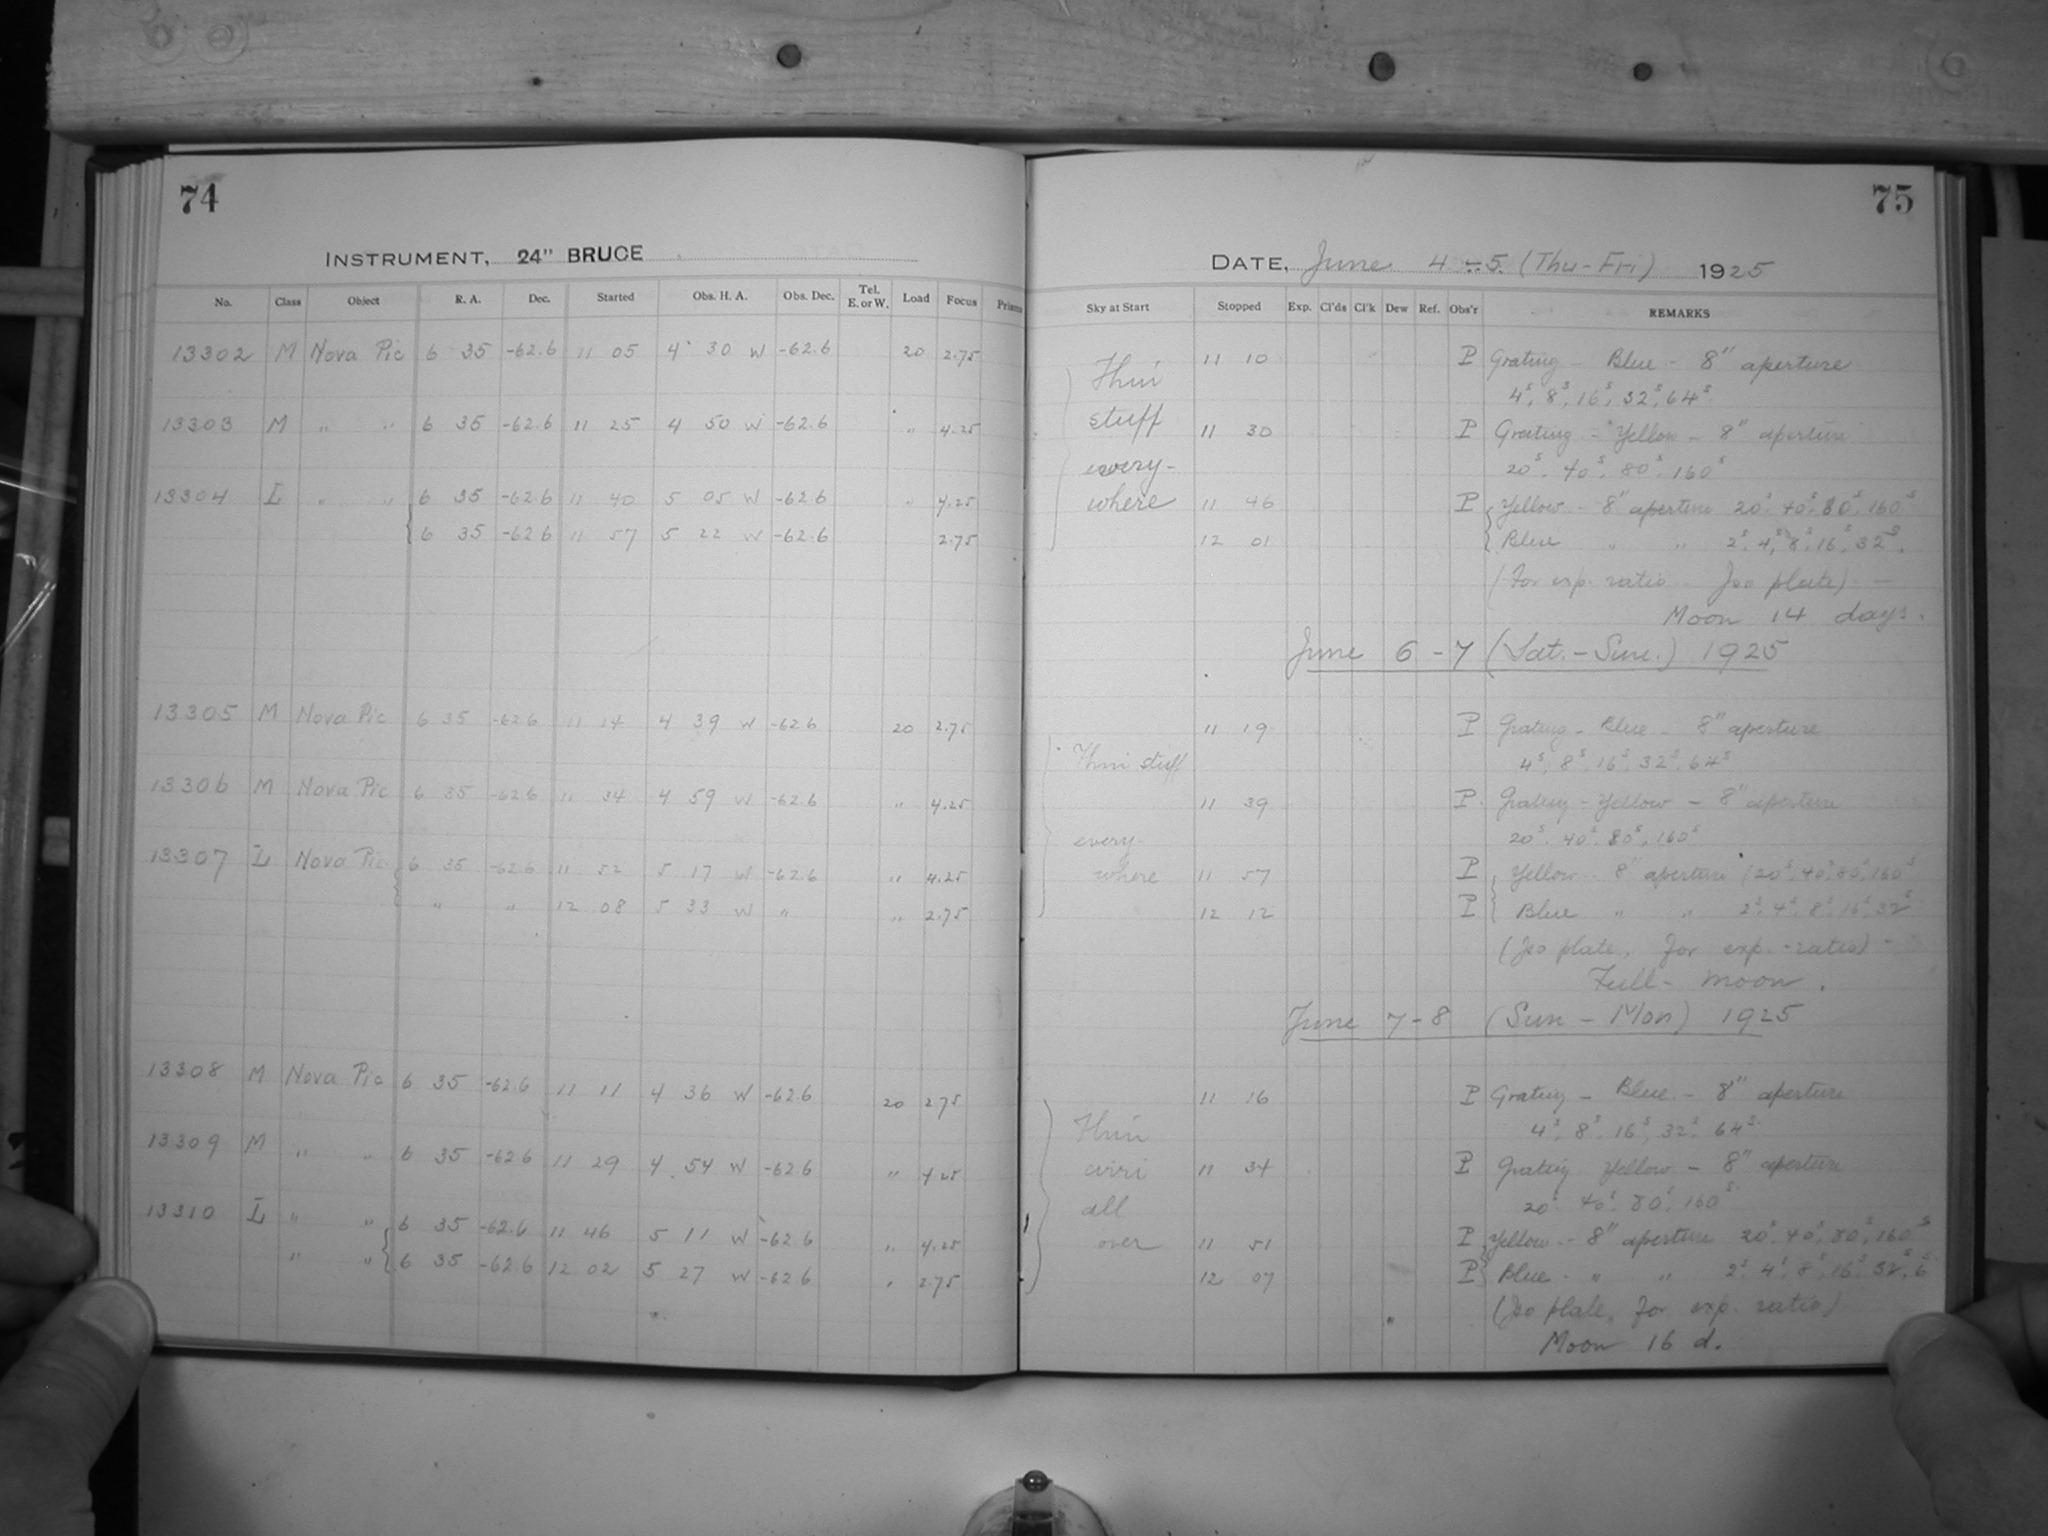 74
INSTRUMENT, 24" BRUCE
No. Class Object R. A. Dec. Started Obs. H. A. Obs. Dec. Tel. E. or W. Load Focus Prisms
13302 M Nova Pic 6 35 -62.6 11 05 4 30 W -62.6 20 2.75
13303 M " " 6 35 -62.6 11 25 4 50 W -62.6 " 4.25
13304 L " " 6 35 -62.6 11 40 5 05 W -62.6 " 4.25
6 35 -62.6 11 57 5 22 W -62.6 2.75
13305 M Nova Pic 6 35 -62.6 11 14 4 39 W -62.6 20 2.75
13306 M Nova Pic 6 35 -62.6 11 34 4 59 W -62.6 " 4.25
13307 L Nova Pic 6 35 -62.6 11 52 5 17 W -62.6 " 4.25
" " 12 08 5 33 W " " 2.75
13308 M Nova Pic 6 35 -62.6 11 11 4 36 W -62.6 20 2.75
13309 M " " 6 35 -62.6 11 29 4 54 W -62.6 " 4.25
13310 L " " 6 35 -62.6 11 46 5 11 W -62.6 " 4.25
" " 6 35 -62.6 12 02 5 27 W -62.6 " 2.75
75
DATE, June 4-5 (Thu-Fri) 1925
Sky at Start Stopped Exp. Cl'ds Cl'k Dew Ref. Obs'r REMARKS
Thin 11 10 P Grating - Blue - 8" aperture
4s, 8s, 16s, 32s, 64s
stuff 11 30 P Grating - Yellow - 8" aperture
every- 20s, 40s, 80s, 160s
where 11 46 P Yellow - 8" aperture 20s, 40s, 80s, 160s
12 01 Blue " " 2s, 4s, 8s, 16s, 32s.
(For exp. ratio Iso plate) -
Moon 14 days.
June 6-7 (Sat.-Sun.) 1925
11 19 P Grating - Blue - 8" aperture
Thin stuff 4s, 8s, 16s, 32s, 64s
11 39 P. Grating - Yellow - 8" aperture
every- 20s, 40s, 80s, 160s
where 11 57 P Yellow - 8" aperture (20s, 40s, 80s, 160s
12 12 P Blue " " 2s, 4s, 8s, 16s, 32s
(Iso plate, for exp.-ratio) -
Full-moon.
June 7-8 (Sun-Mon) 1925
11 16 P Grating - Blue - 8" aperture
Thin 4s, 8s, 16s, 32s, 64s
cirri 11 34 P Grating Yellow - 8" aperture
all 20s, 40s, 80s, 160s
over 11 51 P Yellow - 8" aperture 20s, 40s, 80s, 160s
12 07 P Blue - " " 2s, 4s, 8s, 16s, 32s,
(Iso plate, for exp. ratio)
Moon 16 d.